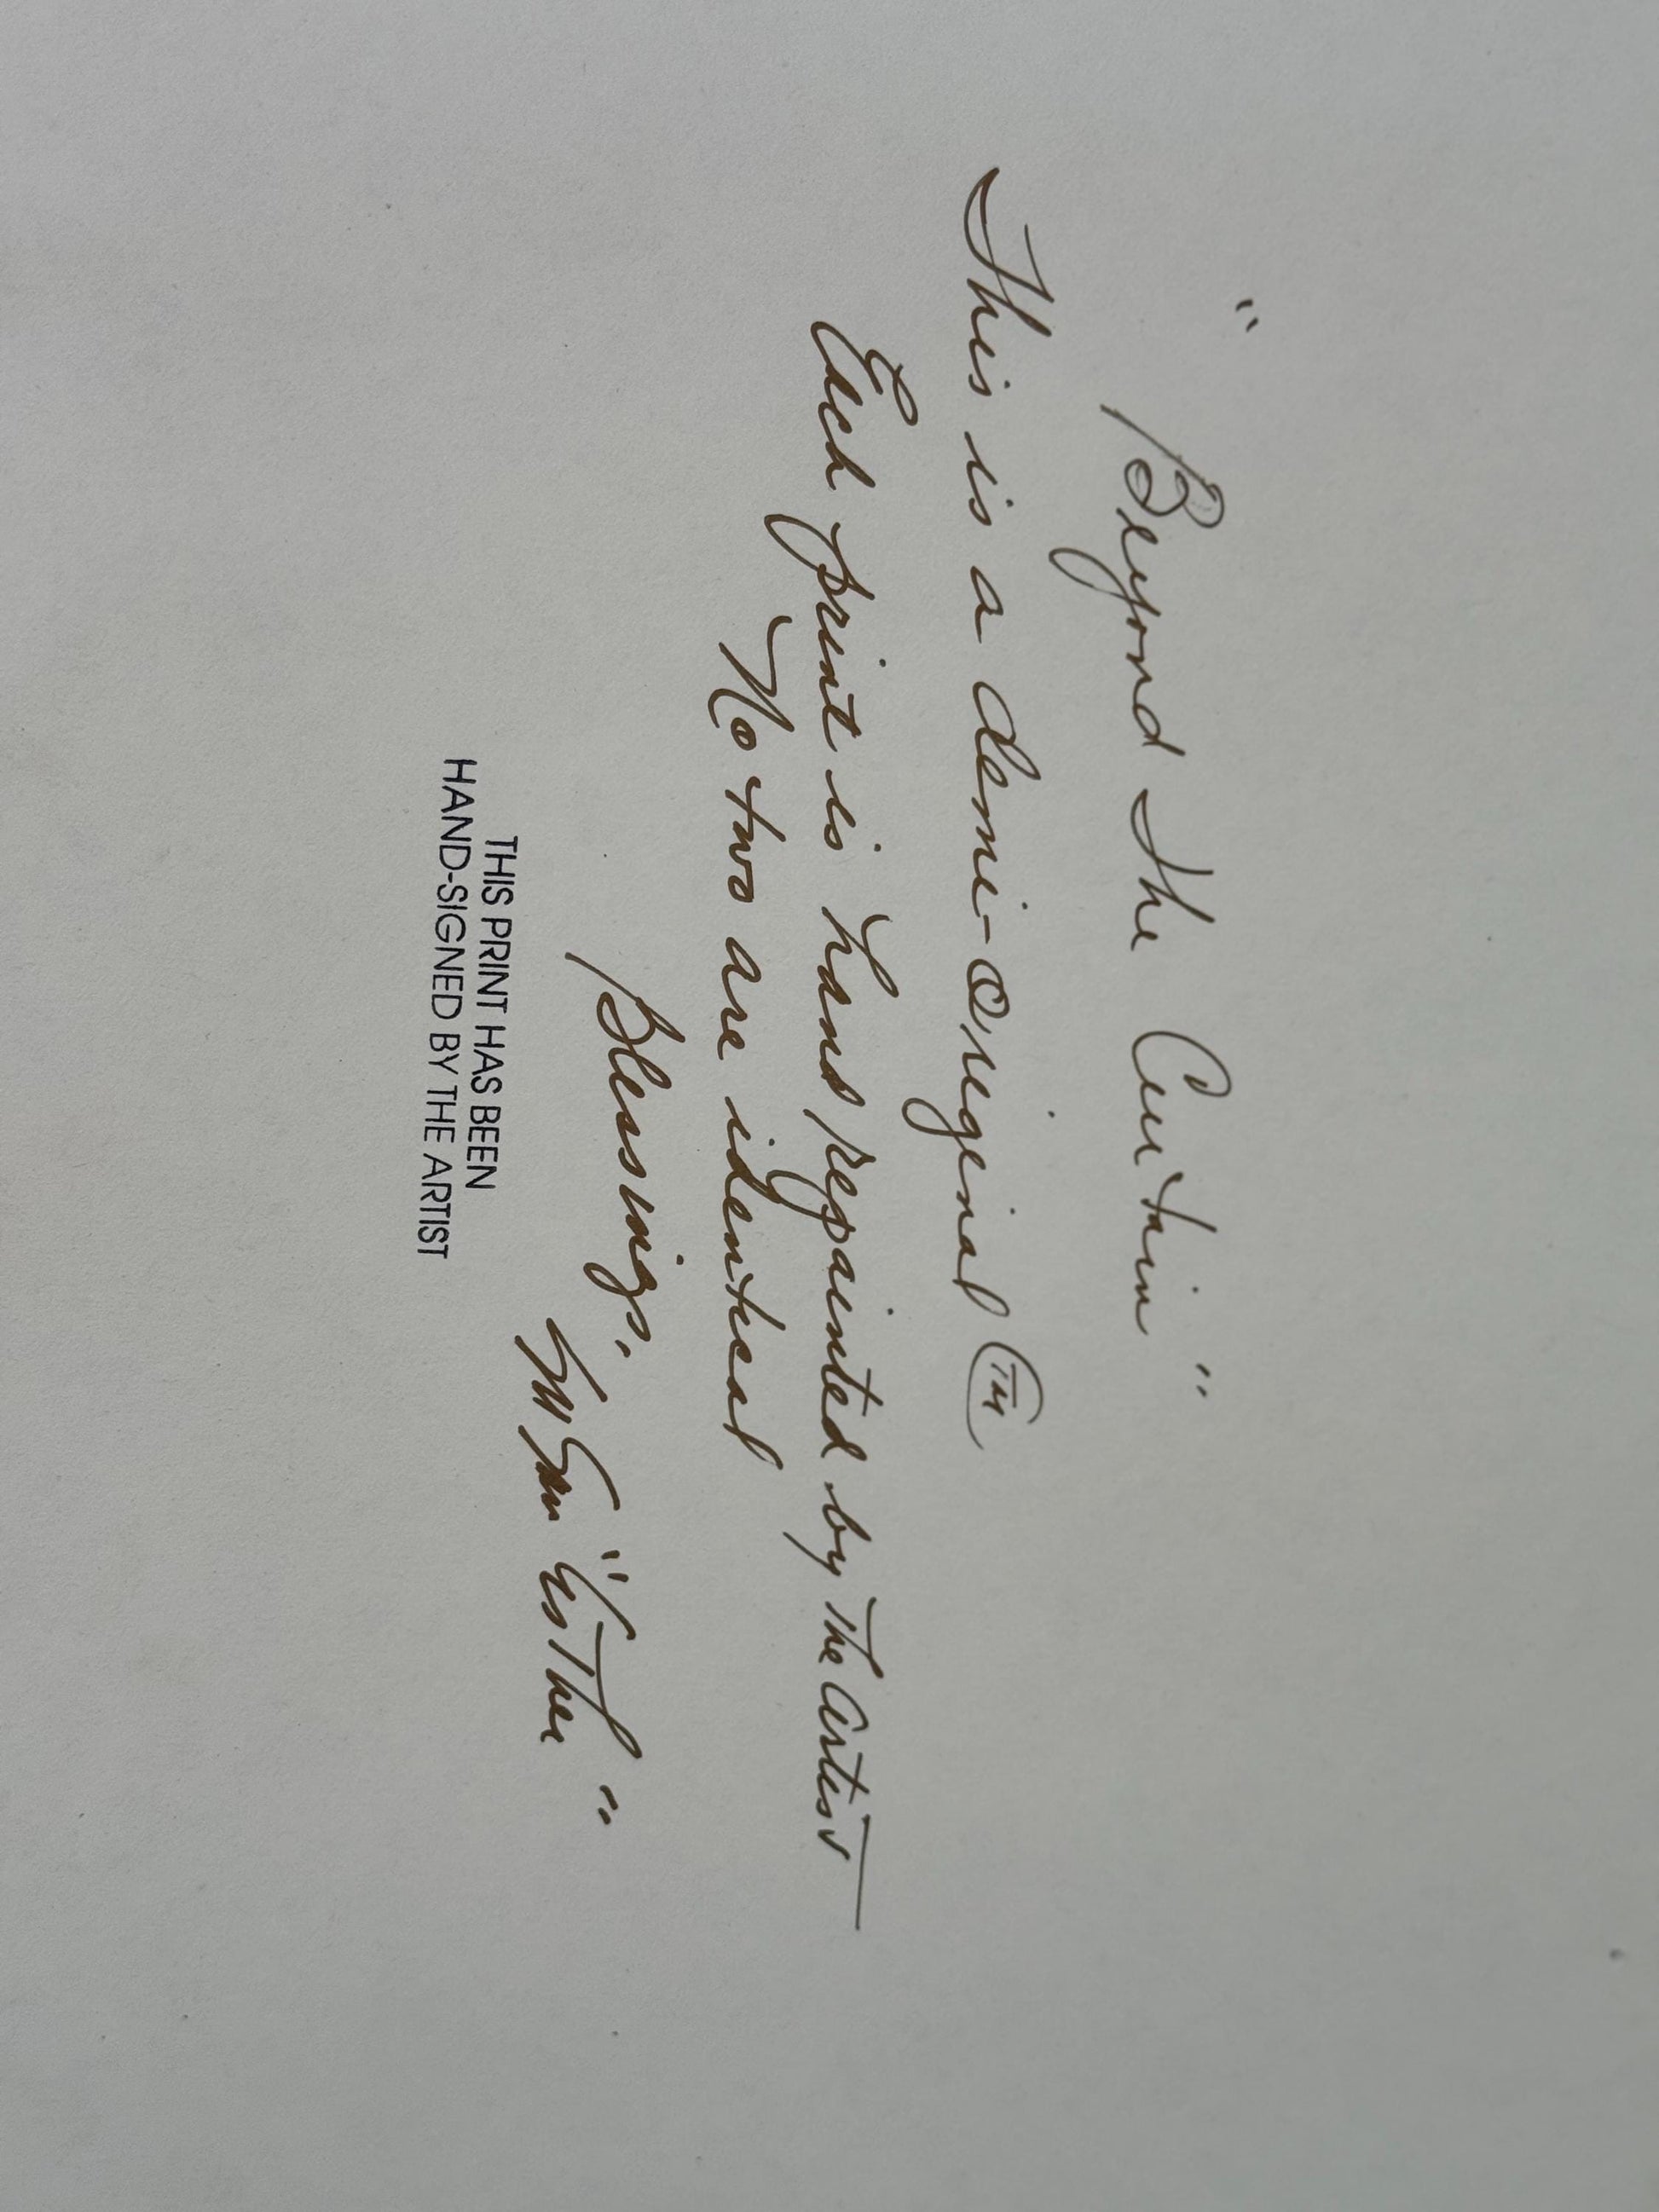 " Beyond the Curtain "
This is a demi-original TM
Each print is hand repainted by The Artist
No two are identical
Blessings,
"Esther"
THIS PRINT HAS BEEN
HAND-SIGNED BY THE ARTIST